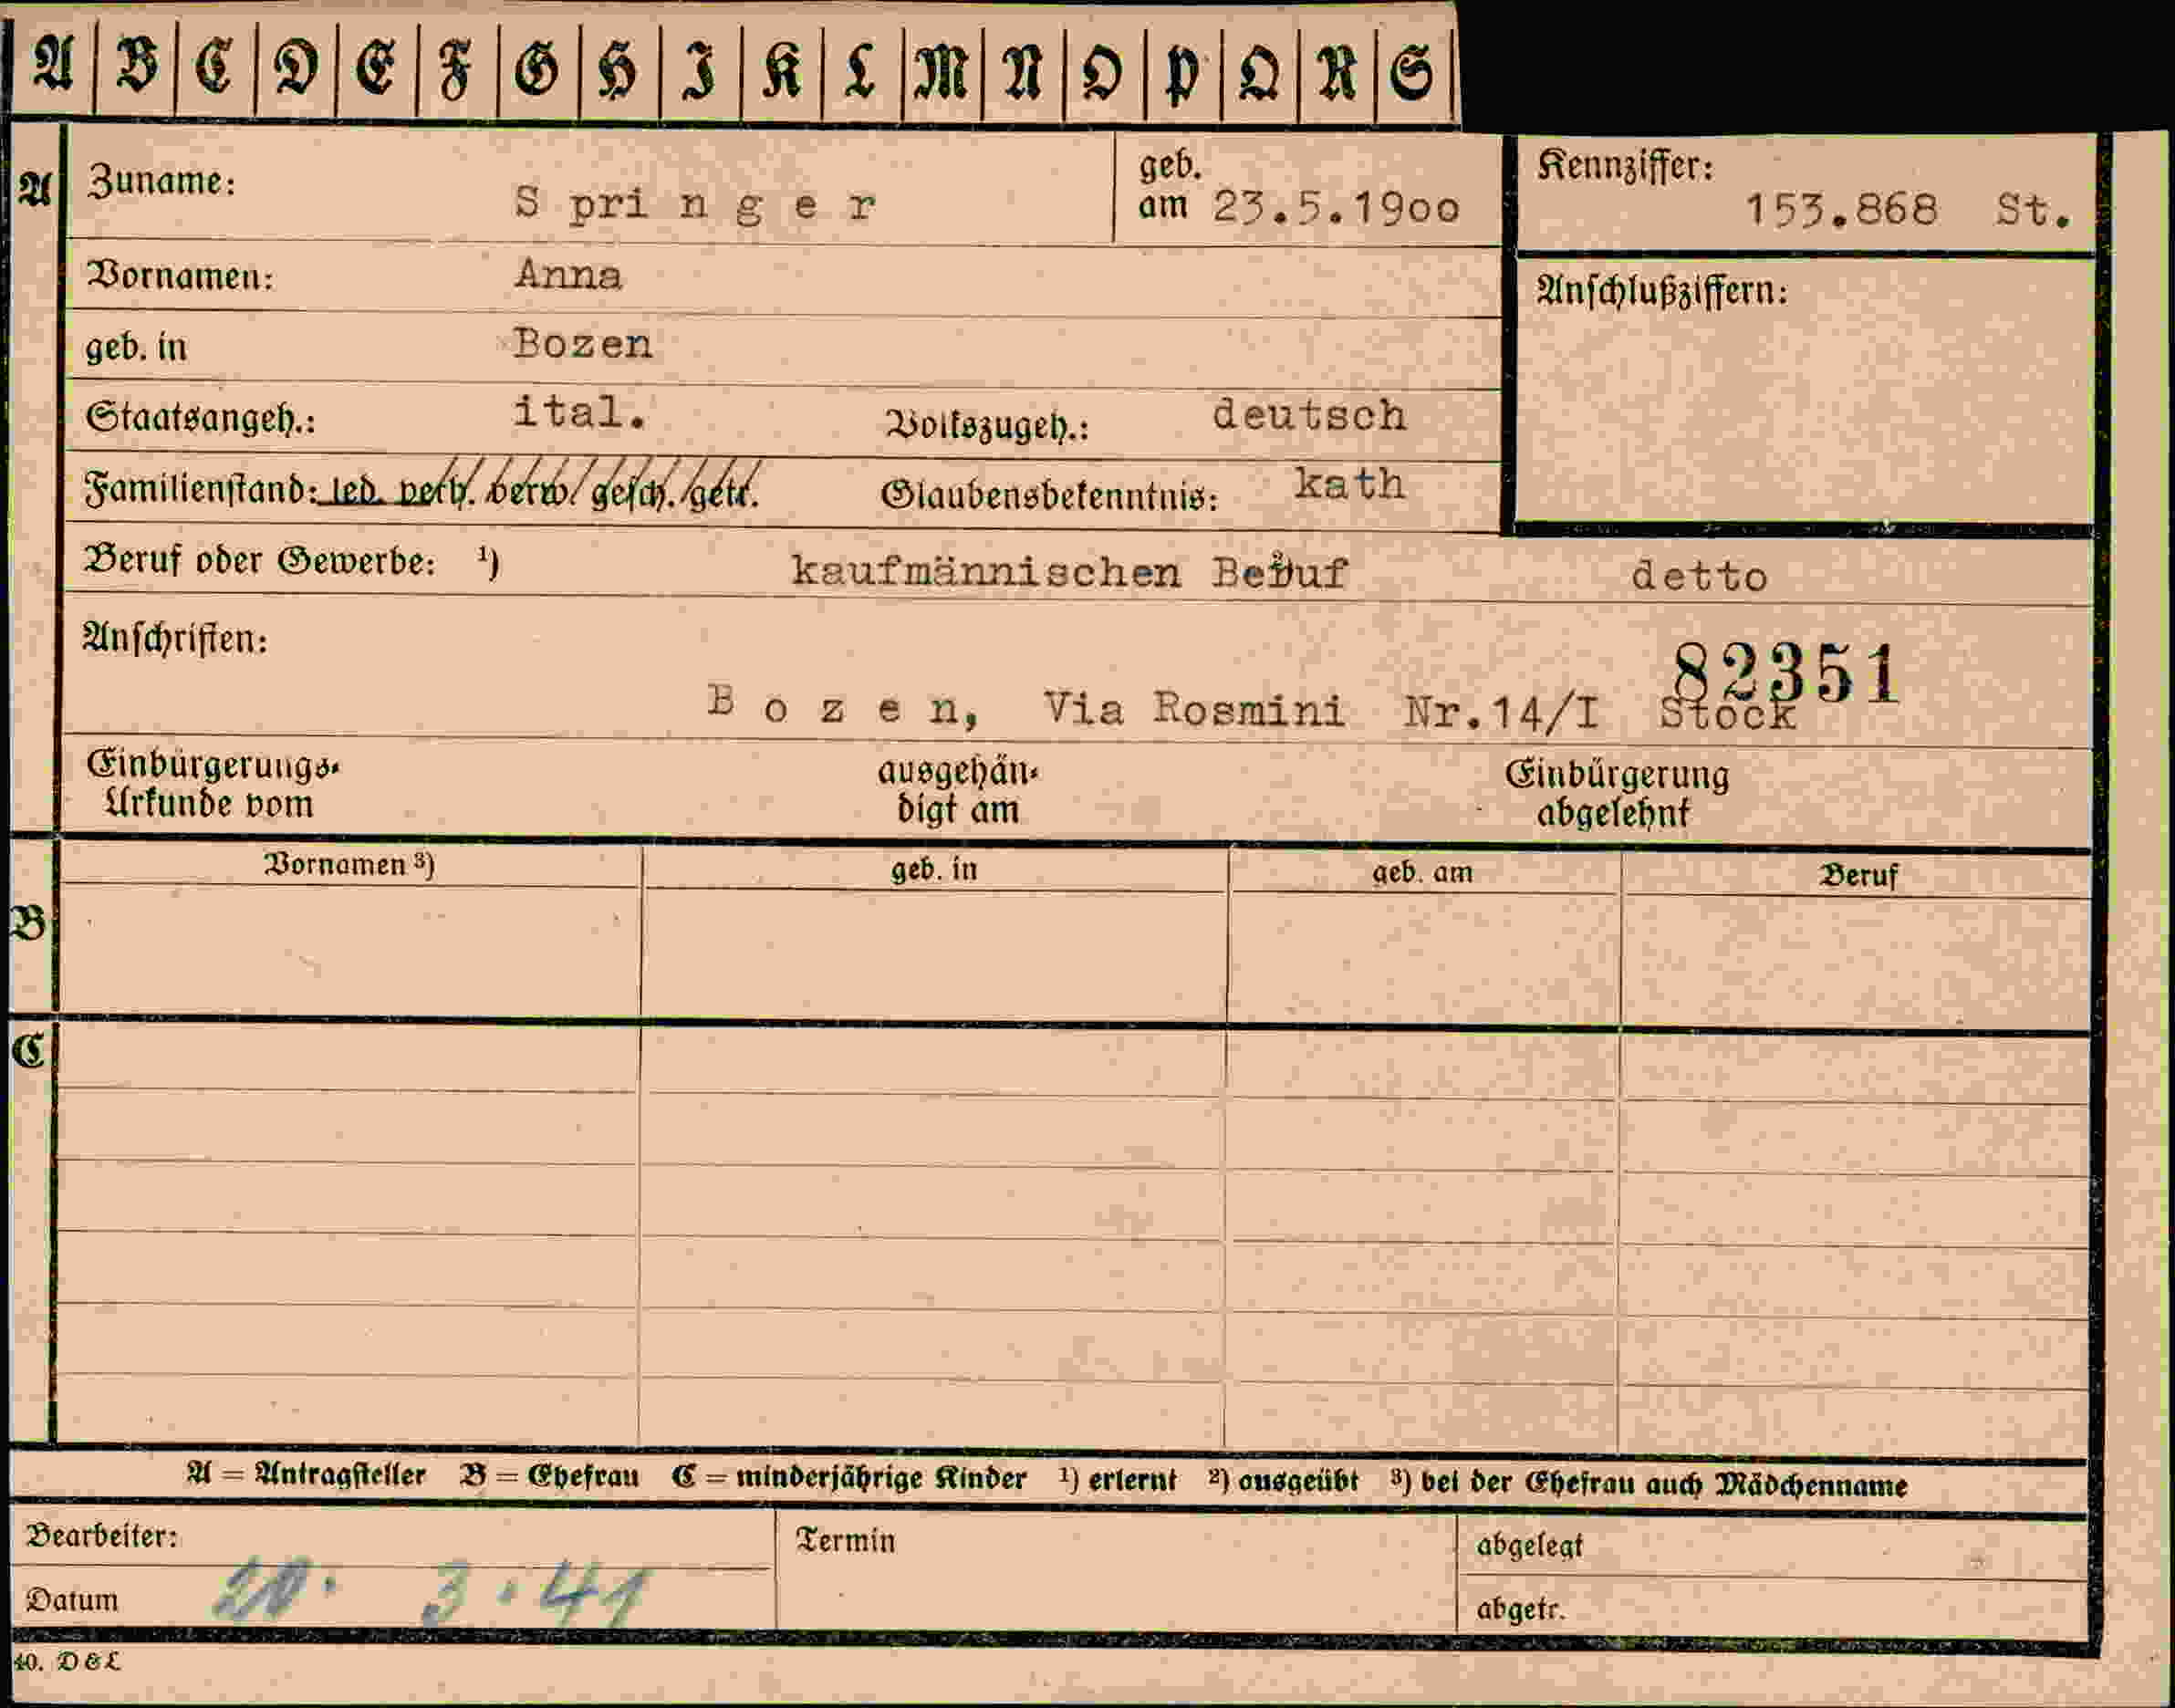 A B C D E F G H I K L M N O P Q R S
A Zuname: Springer geb. am 23.5.19oo Kennziffer: 153.868 St.
Vornamen: Anna Anschlußziffern:
geb. in Bozen
Staatsangeh.: ital. Volkszugeh.: deutsch
Familienstand: led. verh. verw. gesch. getr. Glaubensbekenntnis: kath
Beruf oder Gewerbe: ¹) kaufmännischen Beruf detto
Anschriften:
82351
Bozen, Via Rosmini Nr.14/I Stock
Einbürgerungs-Urkunde vom ausgehän-digt am Einbürgerung abgelehnt
Vornamen ³) geb. in geb. am Beruf
B
C
A = Antragsteller B = Ehefrau C = minderjährige Kinder ¹) erlernt ²) ausgeübt ³) bei der Ehefrau auch Mädchenname
Bearbeiter: Termin abgelegt
Datum 20. 3.41 abgetr.
40. D&L